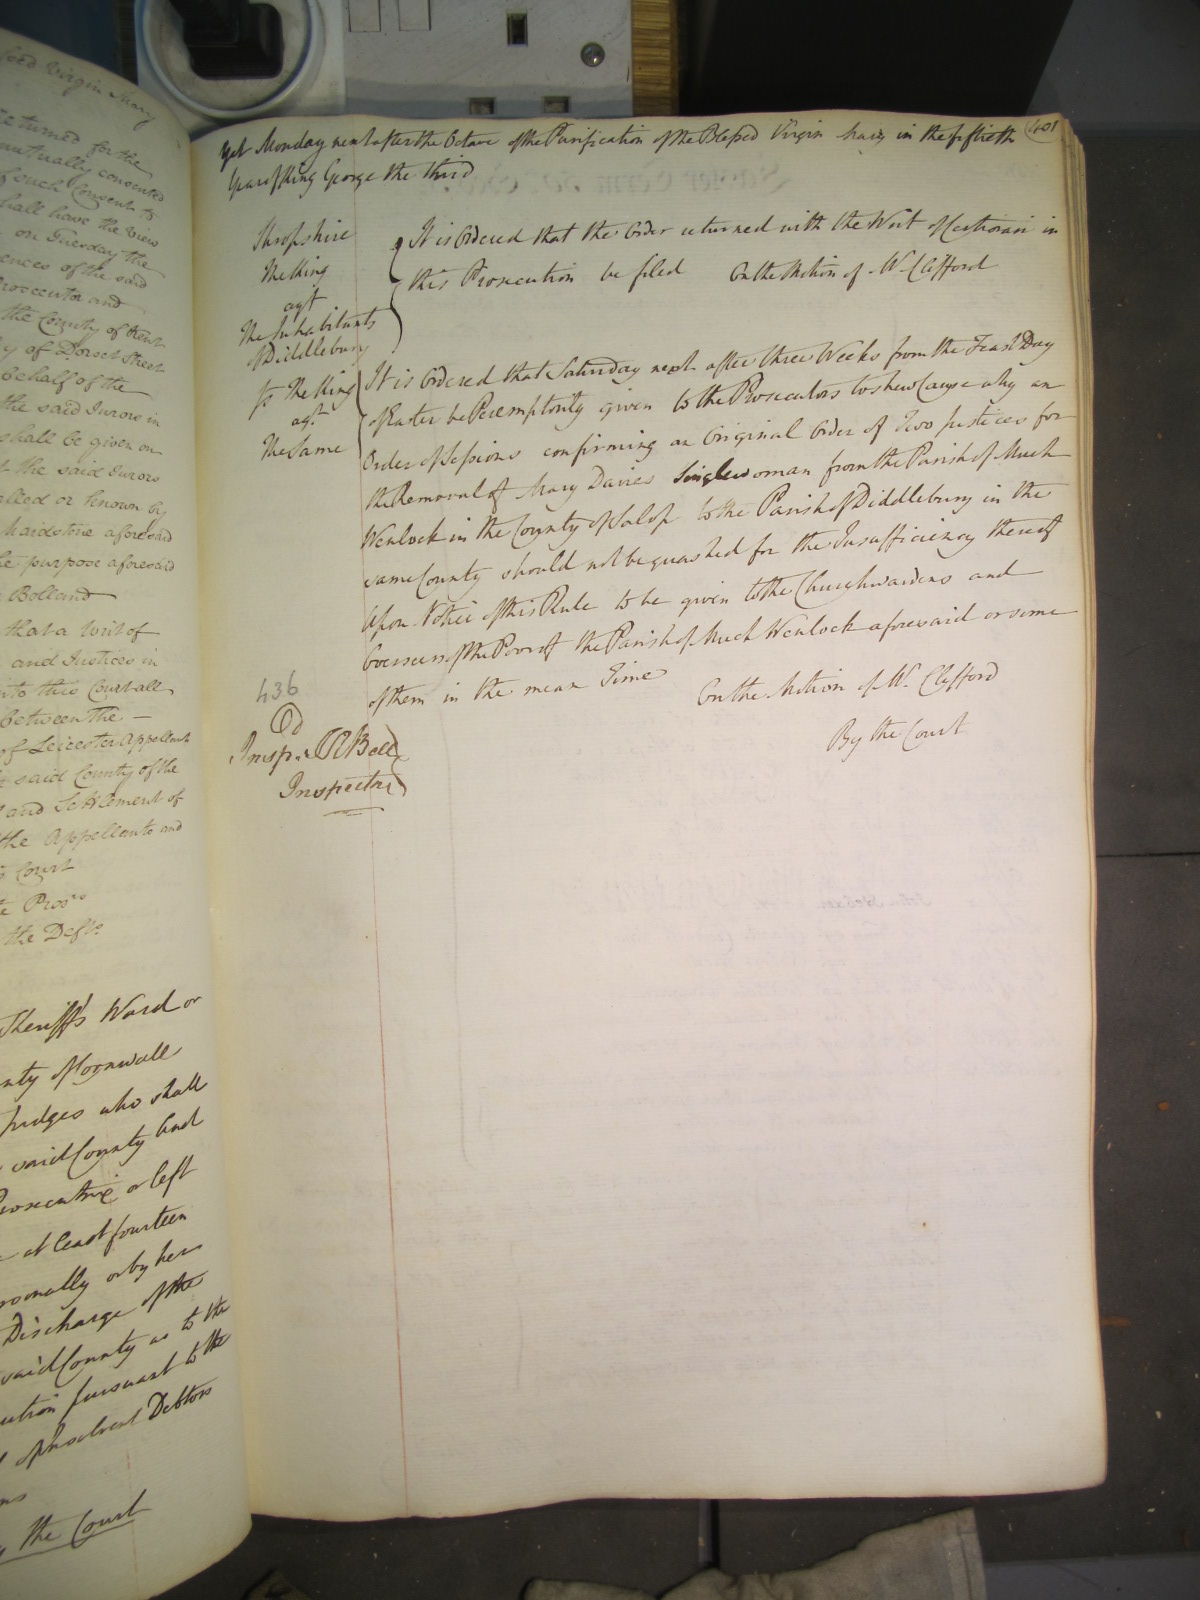 ssed Virgin Mary
returned for the
mutually consented
such Consent to
shall have the view
on Tuesday the
ences of the said
Prosecutor and
the County of Kent
y of Dorset Street
behalf of the
the said Jurors in
shall be given on
the said Jurors
alled or known by
Maidstone aforesaid
he purpose aforesaid
Bolland
that a Writ of
and Justices in
into this Court all
between the —
of Leicester Appellant
said County of the
and Settlement of
the Appellants and
Court
Pros.rs
the Defts
Sheriff's Ward or
nty of Cornwall
Judges who shall
said County and
Prosecutrix or left
at least fourteen
rsonally or by her
Discharge of the
said County as to the
ution pursuant to the
of Insolvent Debtors
ns
the Court
401
Yet Monday next after the Octave of the Purification of the Blessed Virgin Mary in the fiftieth
Year of King George the third
Shropshire
The King
agt
The Inhabitants
of Diddlebury
It is Ordered that the Order returned with the Writ of Certiorari in
this Prosecution be filed On the Motion of Mr. Clifford
The King
agt
The Same
It is Ordered that Saturday next after three Weeks from the Feast Day
of Easter be Peremptorily given to the Prosecutors to shew Cause why an
Order of Sessions confirming an Original Order of Two Justices for
the Removal of Mary Davies Singlewoman from the Parish of Much
Wenlock in the County of Salop to the Parish of Diddlebury in the
same County should not be quashed for the Insufficiency thereof
Upon Notice of this Rule to be given to the Churchwardens and
Overseers of the Poor of the Parish of Much Wenlock aforesaid or some
of them in the mean Time
On the Motion of Mr. Clifford
By the Court
436
Inspd R Bell
Inspector